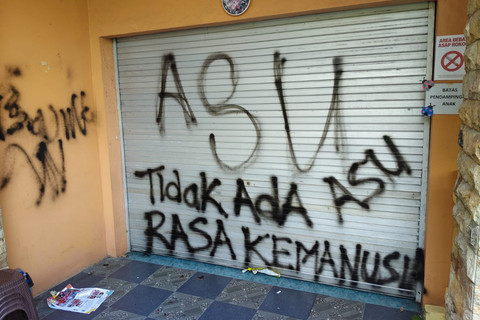 ASU
Tidak Ada ASU
RASA KEMANUSIA
AREA BEBAS
ASAP ROKOK
BATAS
PENDAMPING
ANAK